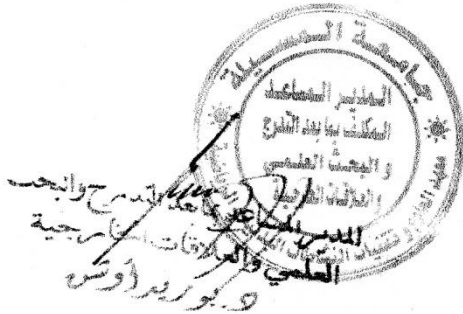 جامعة المسيلة
المدير المساعد
المكلف بما بعد التدرج
و البحث العلمي
و العلاقات الخارجية
المدير المساعد لما بعد التدرج والبحث
العلمي والعلاقات الخارجية
د. بوزيد